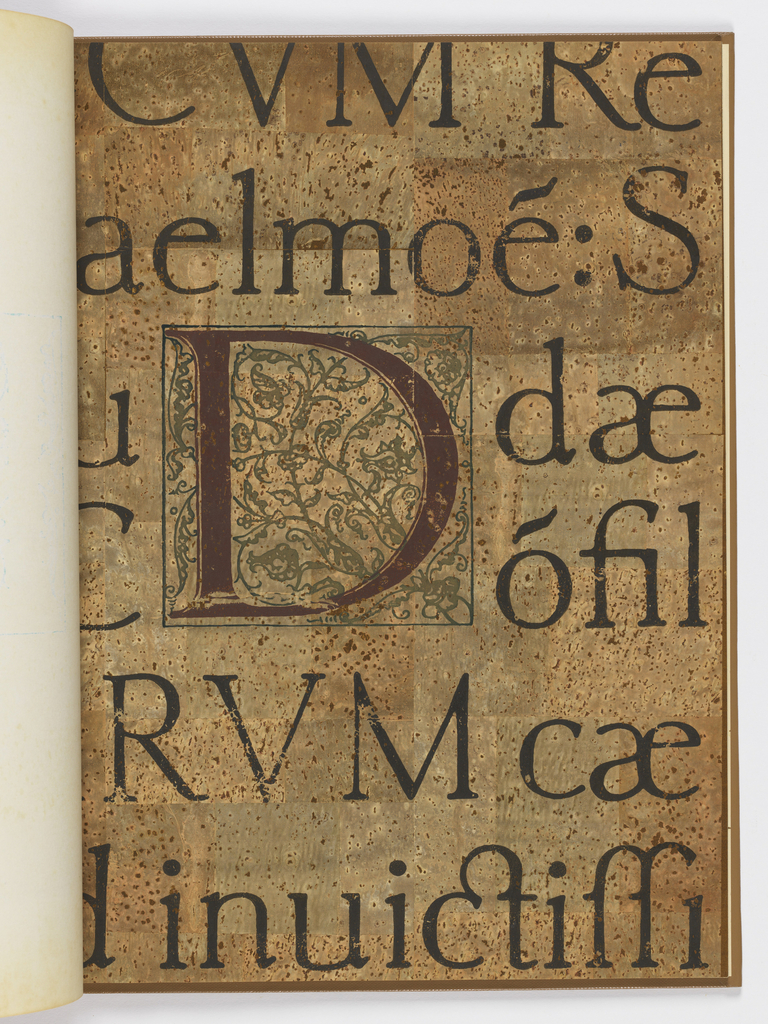 CVM Re
aelmoé:S
u D dæ
C ófil
RVM cæ
d inuictiſſi